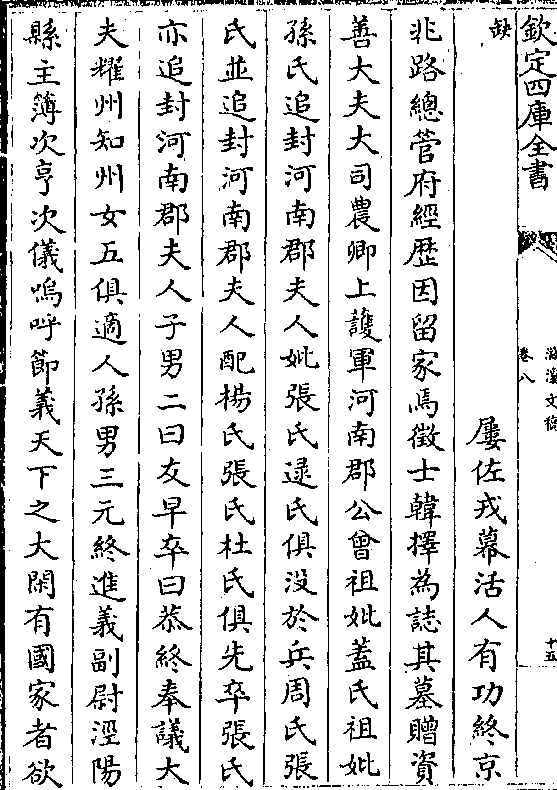 欽定四庫全書
卷八
十五
缺 屢佐戎幕活人有功終京
兆路總管府經歴因留家焉徵士韓擇為誌其墓贈資
善大夫大司農卿上護軍河南郡公曾祖妣葢氏祖妣
孫氏追封河南郡夫人妣張氏逯氏俱沒於兵周氏張
氏並追封河南郡夫人配楊氏張氏杜氏俱先卒張氏
亦追封河南郡夫人子男二曰友早卒曰恭終奉議大
夫耀州知州女五俱適人孫男三元終進義副尉涇陽
縣主簿次亨次儀嗚呼節義天下之大閑有國家者欲